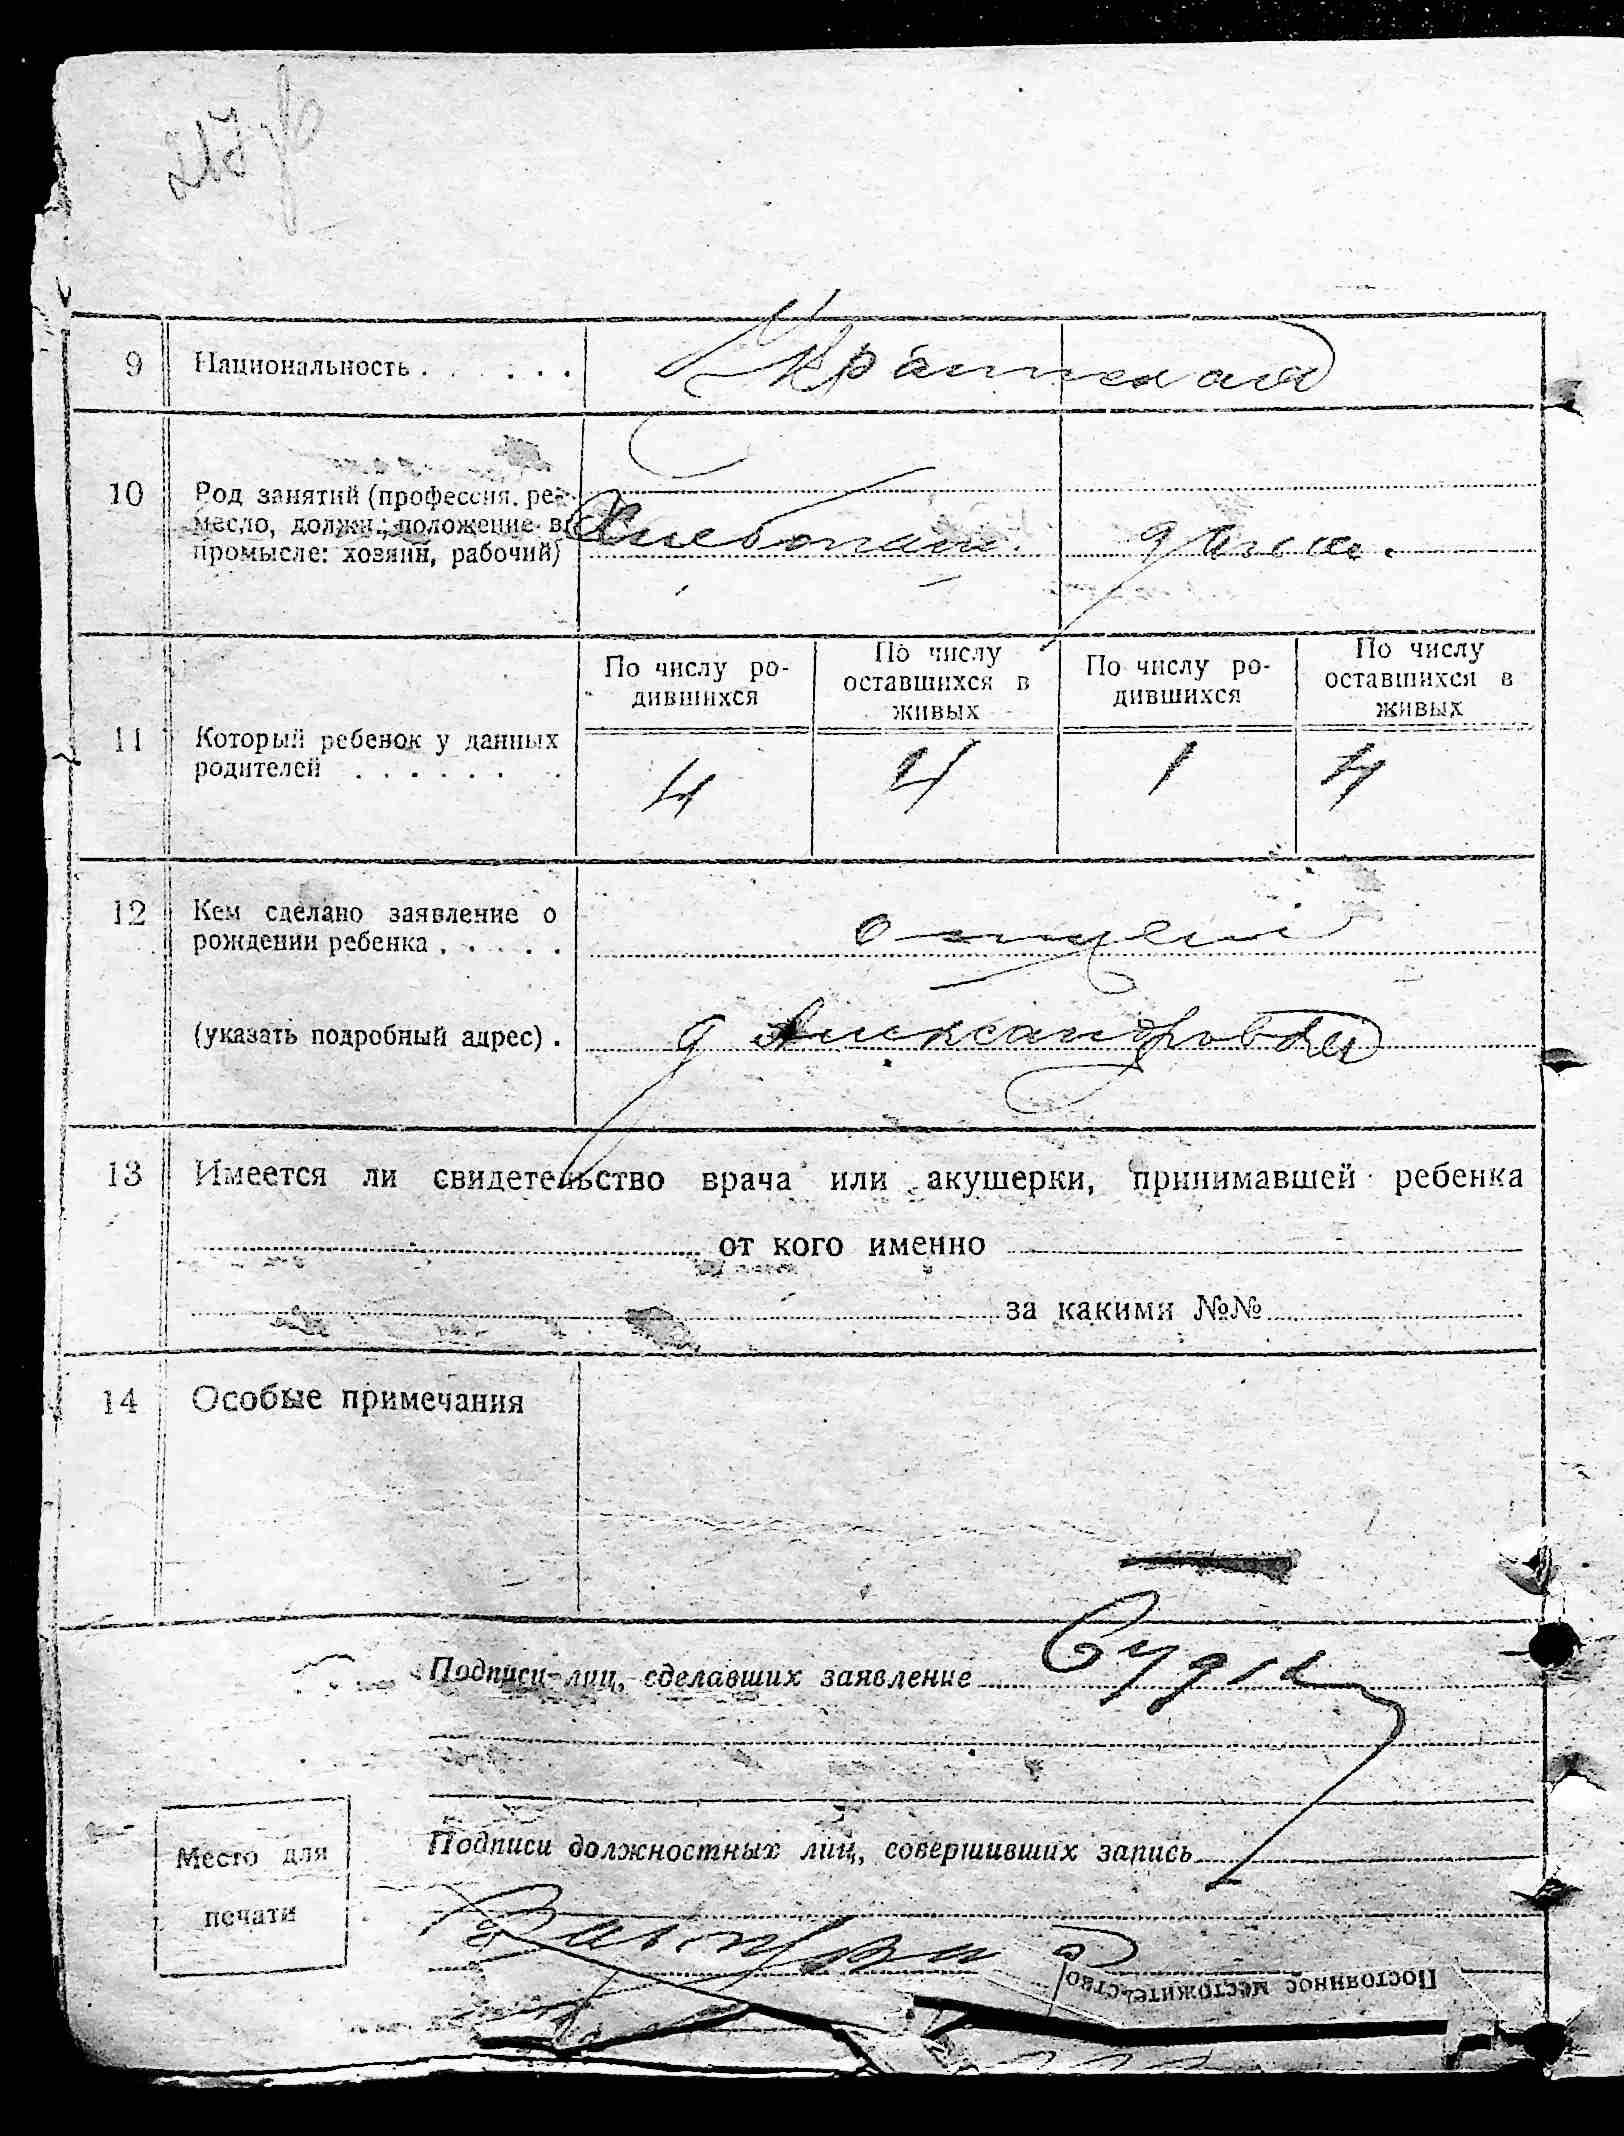 9 Национальность
10 Род занятий (профессия, ре-
месло, должн.; положение в
промысле: хозяин, рабочий)
По числу ро-
дившихся
По числу
оставшихся в
живых
По числу ро-
дившихся
По числу
оставшихся в
живых
11 Который ребенок у данных
родителей
4 4 1 4
12 Кем сделано заявление о
рождении ребенка
отцем
(указать подробный адрес) . д Александровка
13 Имеется ли свидетельство врача или акушерки, принимавшей ребенка
от кого именно
за какими №№
14 Особые примечания
Подписи лиц, сделавших заявление
Место для
печати
Подписи должностных лиц, совершивших запись
Постоянное местожительство